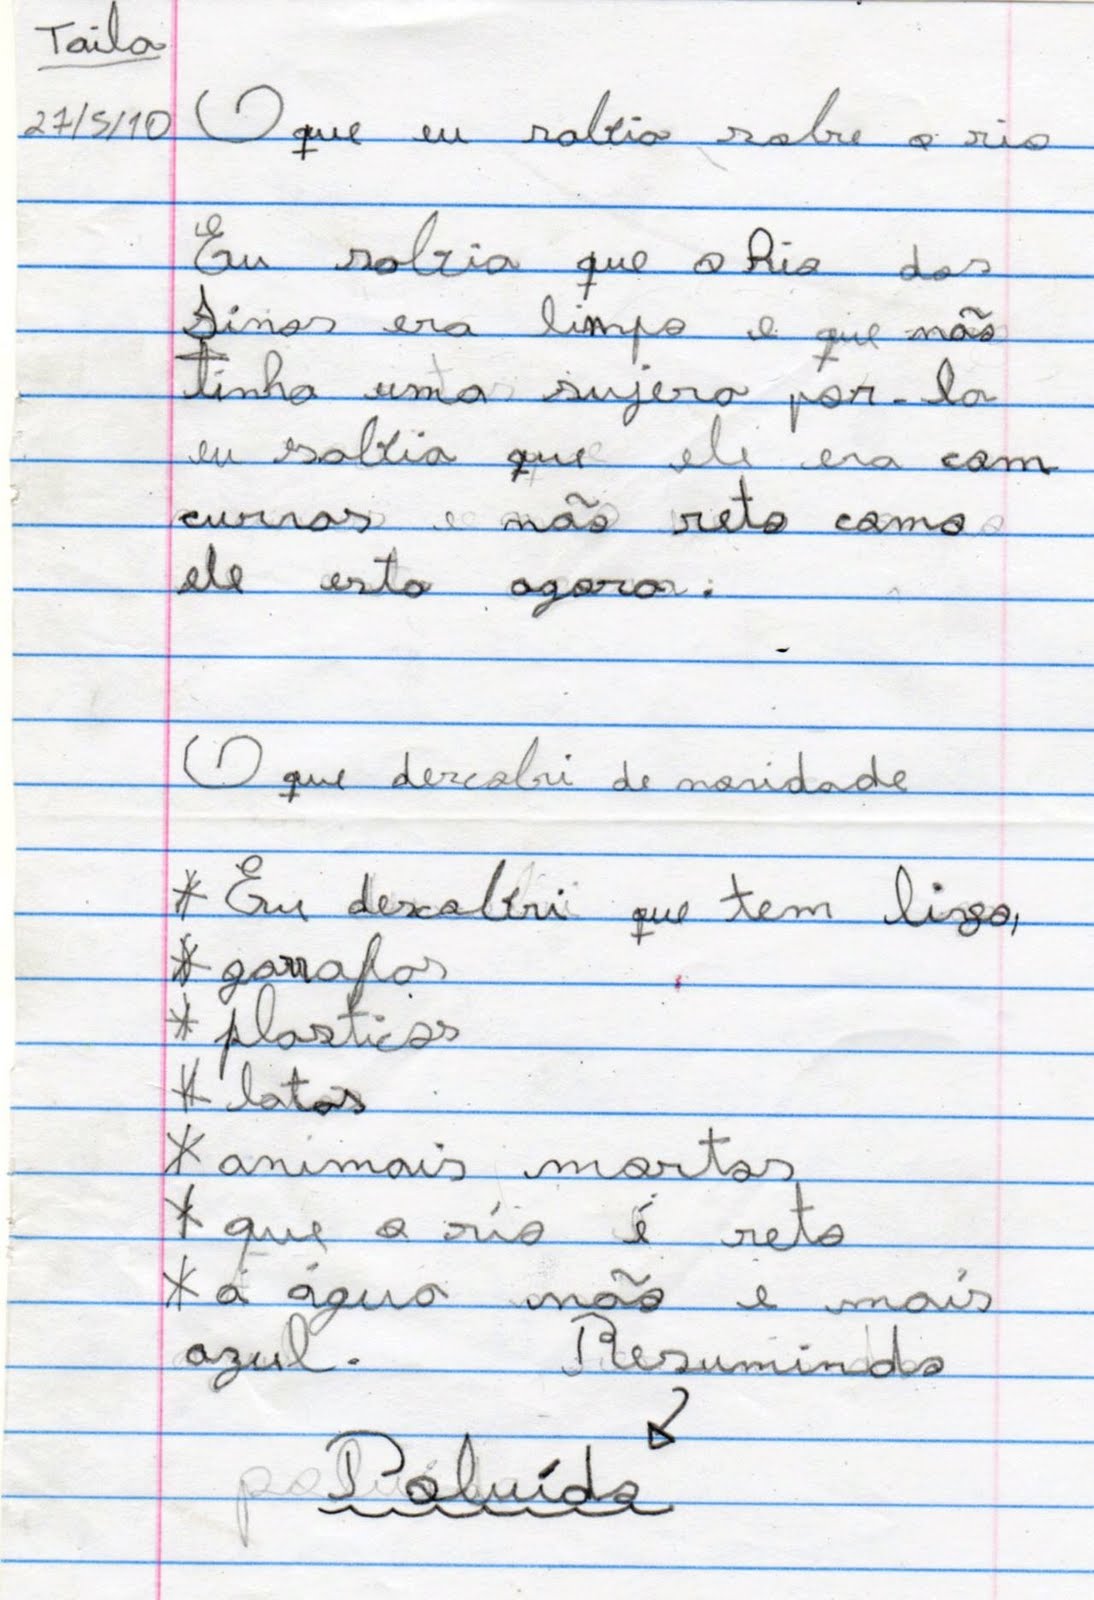 Taila
27/5/10 O que eu sabia sobre o rio
Eu sabia que o Rio dos
Sinos era limpo e que não
tinha uma sujera por-la
eu sabia que ele era com
curvas e não reto como
ele esta agora.
O que descobri de novidade
* Eu descobri que tem lixo,
* garrafas
* plasticos
* latas
* animais mortos
* que o río é reto
* á água não e mais
azul. Resumindo
Poluído